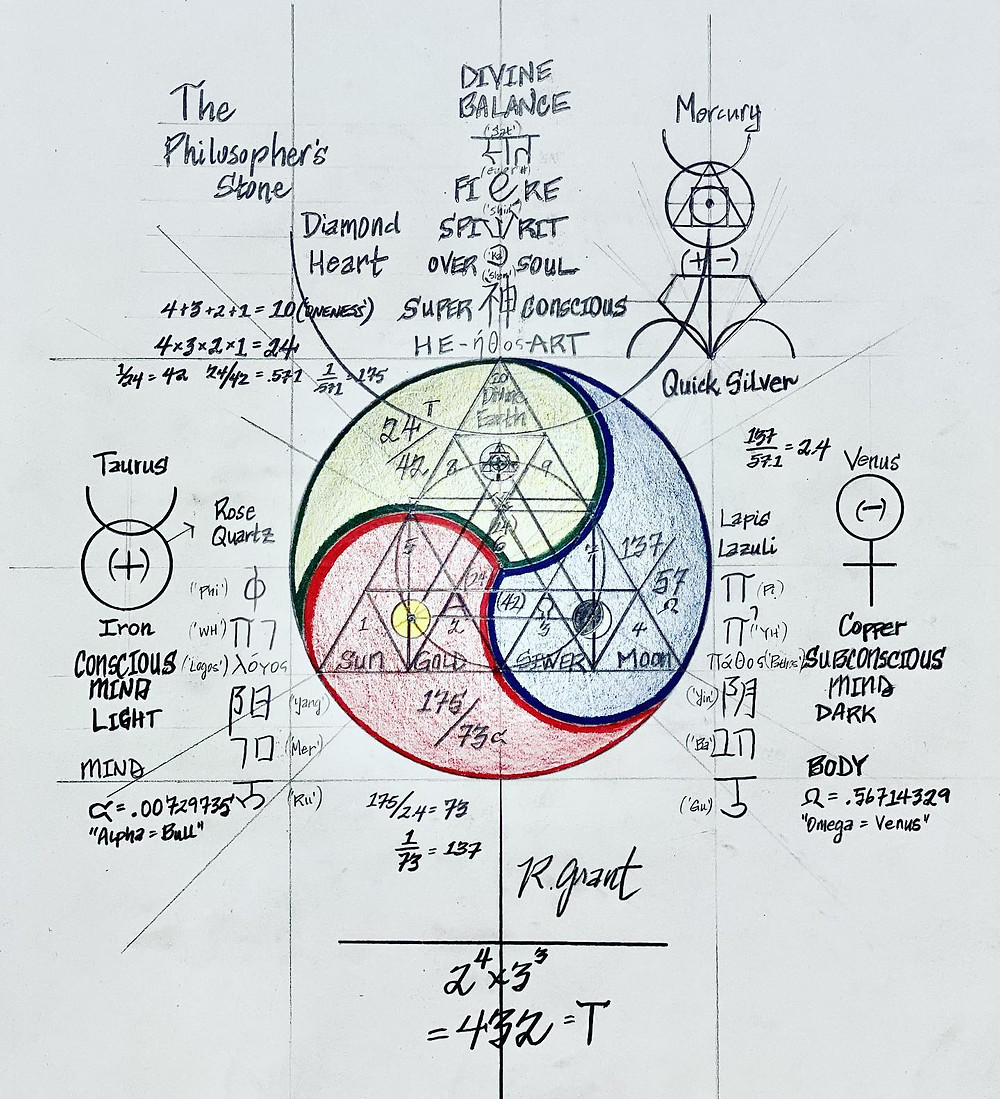 The
Philosopher's
Stone
DIVINE
BALANCE
('Sat')
Mercury
FI RE
('Shin')
SPI RIT
Diamond
Heart
OVER SOUL
('Ka')
('Shen')
(+ -)
4+3+2+1 = 10 ('ONENESS')
SUPER 神 CONSCIOUS
4×3×2×1 = 24
HE-ήθος-ART
1/24 = 42 24/42 = .571 1/571 = 175
Quick Silver
10
Divine
Earth
24/42 T
8
9
137/57.1 = 2.4
Taurus
Venus
Rose
Quartz
(+)
Lapis
Lazuli
(-)
(24)
6
5
7
137/57 Ω
('Phi') Φ
(24)
(42)
Π (Pi)
Iron
('WH')
1
A
2
Ω
3
4
('YH')
Copper
CONSCIOUS
MIND
LIGHT
('Logos') λόγος
Sun GOLD
SILVER Moon
πάθος ('Pathos')
SUBCONSCIOUS
MIND
DARK
阳 ('Yang')
175/73 α
('Yin') 阴
('Mer')
('Ba')
MIND
BODY
('Ru')
('Gu')
α = .00729735
"Alpha = Bull"
175/2.4 = 73
1/73 = 137
Ω = .56714329
"Omega = Venus"
R. Grant
2⁴×3³
= 432 = T